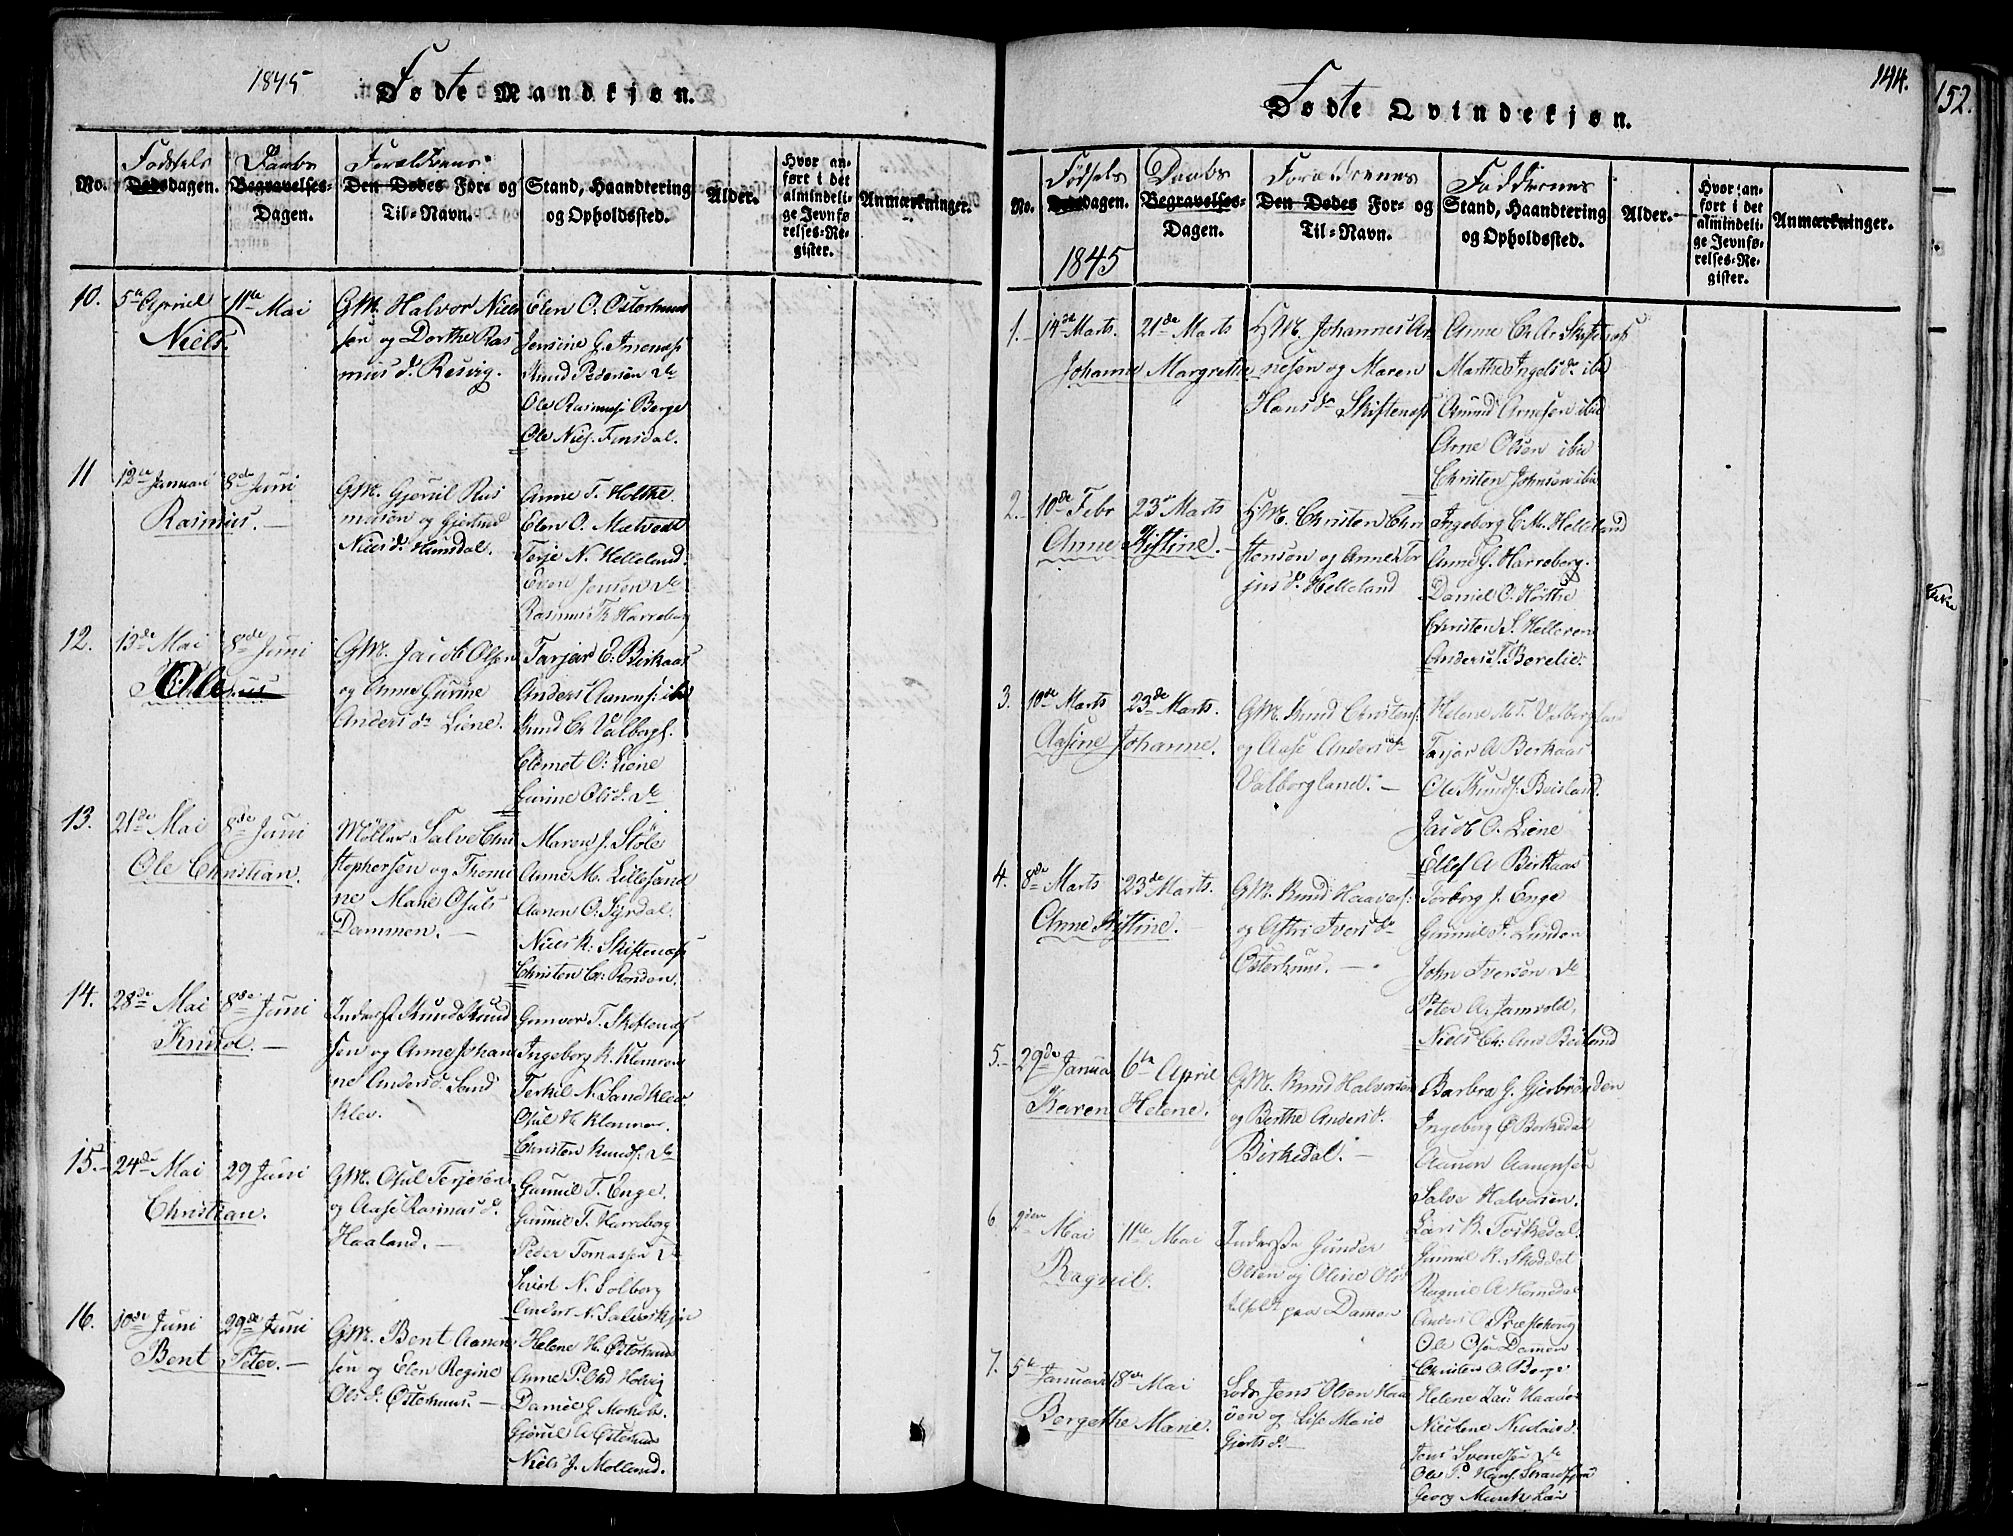 1845
Fødte Mandkjøn.
No.
Fødsels
Dødsdagen.
Daabs
Begravelses-
Dagen.
Forældrenes
Den Dødes For- og
Til-Navn.
Stand, Haandtering
og Opholdssted.
Alder.
Hvor an-
ført i det
almindeli-
ge Jevnfø-
relses-Re-
gister.
Anmærkninger.
10. 5te April 11te Mai
Niels.
GM. Halvor Niel-
sen og Dorthe Ras
mus d. Resvig.
Elen O. Osterhuus
Jensine G.
Knud Pedersen de
Ole Rasmuss Berge
Ole Niels. Finsdal.
11 12te Januari 8de Juni
Rasmus.
GM. Gjeruil Ras
musen og Gjertrud
Niels d. Homdal.
Anne T. Holthe.
Elen O. Mælvedt
Terje N. Helleland.
Even Jensen de
Rasmus T. Harreborg
12. 13de Mai 8de Juni
Ole
GM. Jacob Olsen
og Anne Gurine
Anders dr Liene.
Tarjer E. Birkaas
Anders Aanons: ibd
Knud Cr Valbergl.
Clemet O: Liene
Gurine Ols d. de
13. 21de Mai 8de Juni
Ole Christian.
Møller Salve Chri
stophersen og Thomi
ne Marie Osuls
Dammen.
Maren J. Støle
Anne M. Lillesand
Aanon O. Syrdal.
Niels K: Skiftenæs
Christen Cr: Ronden.
14. 28de Mai 8de Juni
Knud.
Inderst Knud Knud
sen og Anne Johan
ne Anders d. Sand
klev.
Gunvor T. Skiftenæs
Ingeborg K. Klemmen
Terkil N. Sandklev.
Osul H. Klemmen.
Christen Knuds: de
15. 24de Mai 29 Juni
Christian.
GM. Osul Terjesen
og Aase Rasmus d.
Haaland.
Gunnil T. Enge.
Gunnil T. Harreborg
Peder Tomassen de
N. Solberg
Anders N.
16. 10de Juni 29de Juni
Bent Peter.
GM. Bent Aanon
sen og Elen Regine
Ols d. Østerhuus.
Helene H. Østerhuus
Anne P. Holvig
Daniel G.
Gjeruil A. Østerhuus
Niels J. Molland.
144.
152.
Fødte Qvindekjøn.
No.
Fødsels
Dødsdagen.
1845
Daabs
Begravelses-
Dagen.
Forældrenes
Den Dødes For- og
Til-Navn.
Faddernes
Stand, Haandtering
og Opholdssted.
Alder.
Hvor an-
ført i det
almindeli-
ge Jevnfø-
relses-Re-
gister.
Anmærkninger.
1. 14de Marts 21de Marts
Johanne Margrethe
HM. Johannes Ar-
nesen og Maren
Hans dr Skiftenæs
Anne Cr Ar Skiftenæs
Marthe Ingels d. ibid
Amund Arnesen ibid
Arne Olsen ibid
Christen Johnsen ibid
2. 10de Febr 23de Marts
Anne Kistine.
HM. Christen Chri
stensen og Anne Ter
jus d. Helleland
Ingeborg C. M. Helleland
Anne G. Harreborg.
Daniel O. Holthe
Christen S. Helleren
Anders T. Borelie.
3. 10de Marts 23de Marts.
Aasine Johanne.
GM. Knud Christens:
og Aase Anders dr
Valborgland.
Helene M. T. Valborgland
Tarjer A Berkaas
Ole Knuds. Beisland.
Jacob O. Liene
Ellef A Birkaas
4. 8de Marts 23de Marts.
Anne Kistine.
GM. Knud Haavers:
og Astri Ivers dr
Østerhuus.
Torborg J. Enge
Gunnil T. Lunden
John Iversen de
Peter A. Jamvold.
Niels Cr: And Beisland
5. 29de Janua 6te April
Karen Helene.
GM. Knud Halvorsen
og Berthe Anders d.
Birkedal.
Barbra G. Gjerbrønden
Ingeborg O Berkedal
Aanon Aanonsen
Salve Halvorsen.
Lars K. Torkedal.
6 2den Mai 11te Mai
Ragnil.
Inderste Gunder
Olsen og Oline Ols
paa Damen
Gunnil K. Skoddal
Ragnil A Homdal
Anders O Præstehong
Ole Osen Damen
Christen O. Berge
7. 5te Januar 18de Mai
Bergethe Marie.
Lods Jens Olsen Haa
øen og Lise Marie
Gierts d.
Helene Lar: Haaøe
Nicoline Nicolais d.
Jens Svendsen de
Ole P. Hans.
Georg